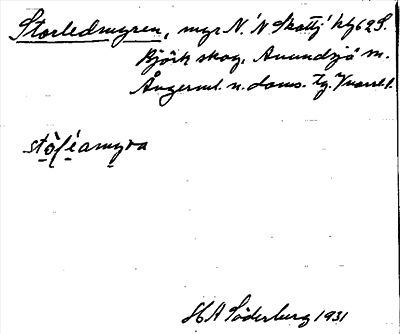 Storledmyren, myr N. 'N Skattj' hfs 2 S.
Björk skog, Anundsjö sn.
Ångerml. n. doms. tg.
stò̱l é̱amyra
HA Söderberg 1931